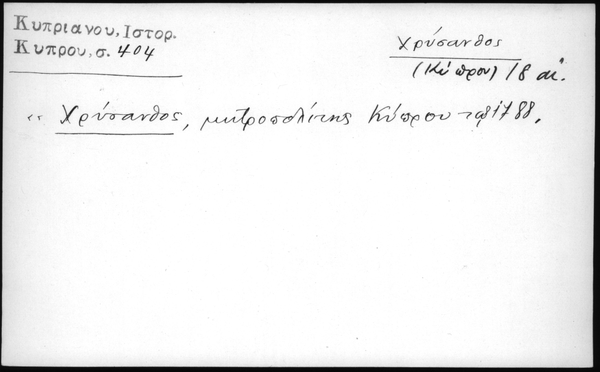 Κυπριανου, Ιστορ.
Κυπρου, σ. 404
Χρύσανθος
(Κύπρου) 18 αἰ.
" Χρύσανθος, μητροπολίτης Κύπρου τῷ 1788.